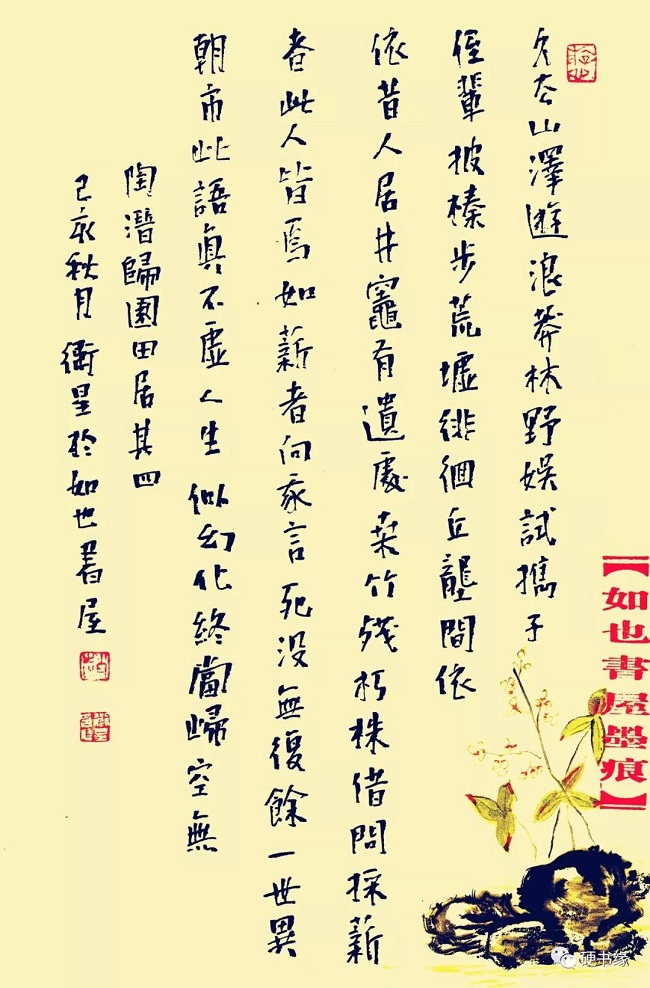 久去山澤遊浪莽林野娛試攜子
侄輩披榛步荒墟徘徊丘壟間依
依昔人居井竈有遺處桑竹殘朽株借問採薪
者此人皆焉如薪者向我言死沒無復餘一世異
朝市此語眞不虛人生似幻化終當歸空無
陶潛歸園田居其四
己亥秋月衛星於如也書屋
【如也書屋墨痕】
硬书缘